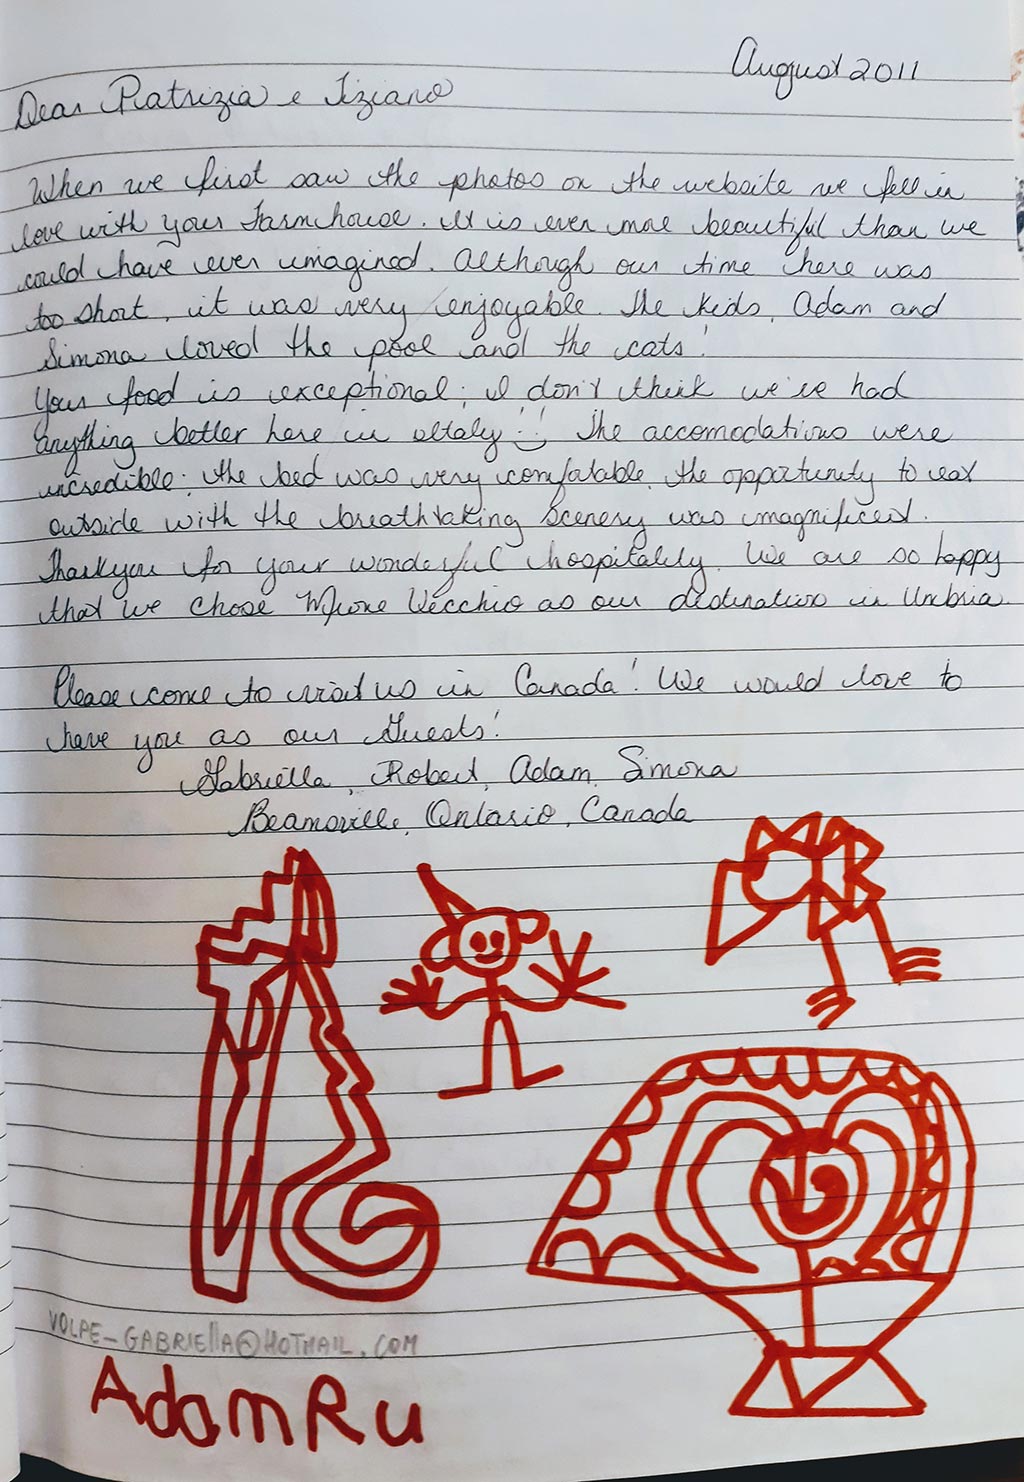 August 2011
Dear Patrizia e Tiziano
When we first saw the photos on the website we fell in
love with your Farmhouse. It is even more beautiful than we
could have ever imagined. Although our time here was
too short, it was very enjoyable. The kids, Adam and
Simona loved the pool and the cats!
Your food is exceptional; I don't think we've had
anything better here in Italy!! The accomodations were
incredible; the bed was very comfortable, the opportunity to eat
outside with the breathtaking scenery was magnificent.
Thankyou for your wonderful hospitality. We are so happy
that we chose Vecchio as our destination in Umbria.
Please come to visit us in Canada! We would love to
have you as our Guests!
Gabriella, Robert, Adam, Simona
Beamsville, Ontario, Canada
VOLPE_GABRIEllA@HOTMAIL.COM
AdamRu